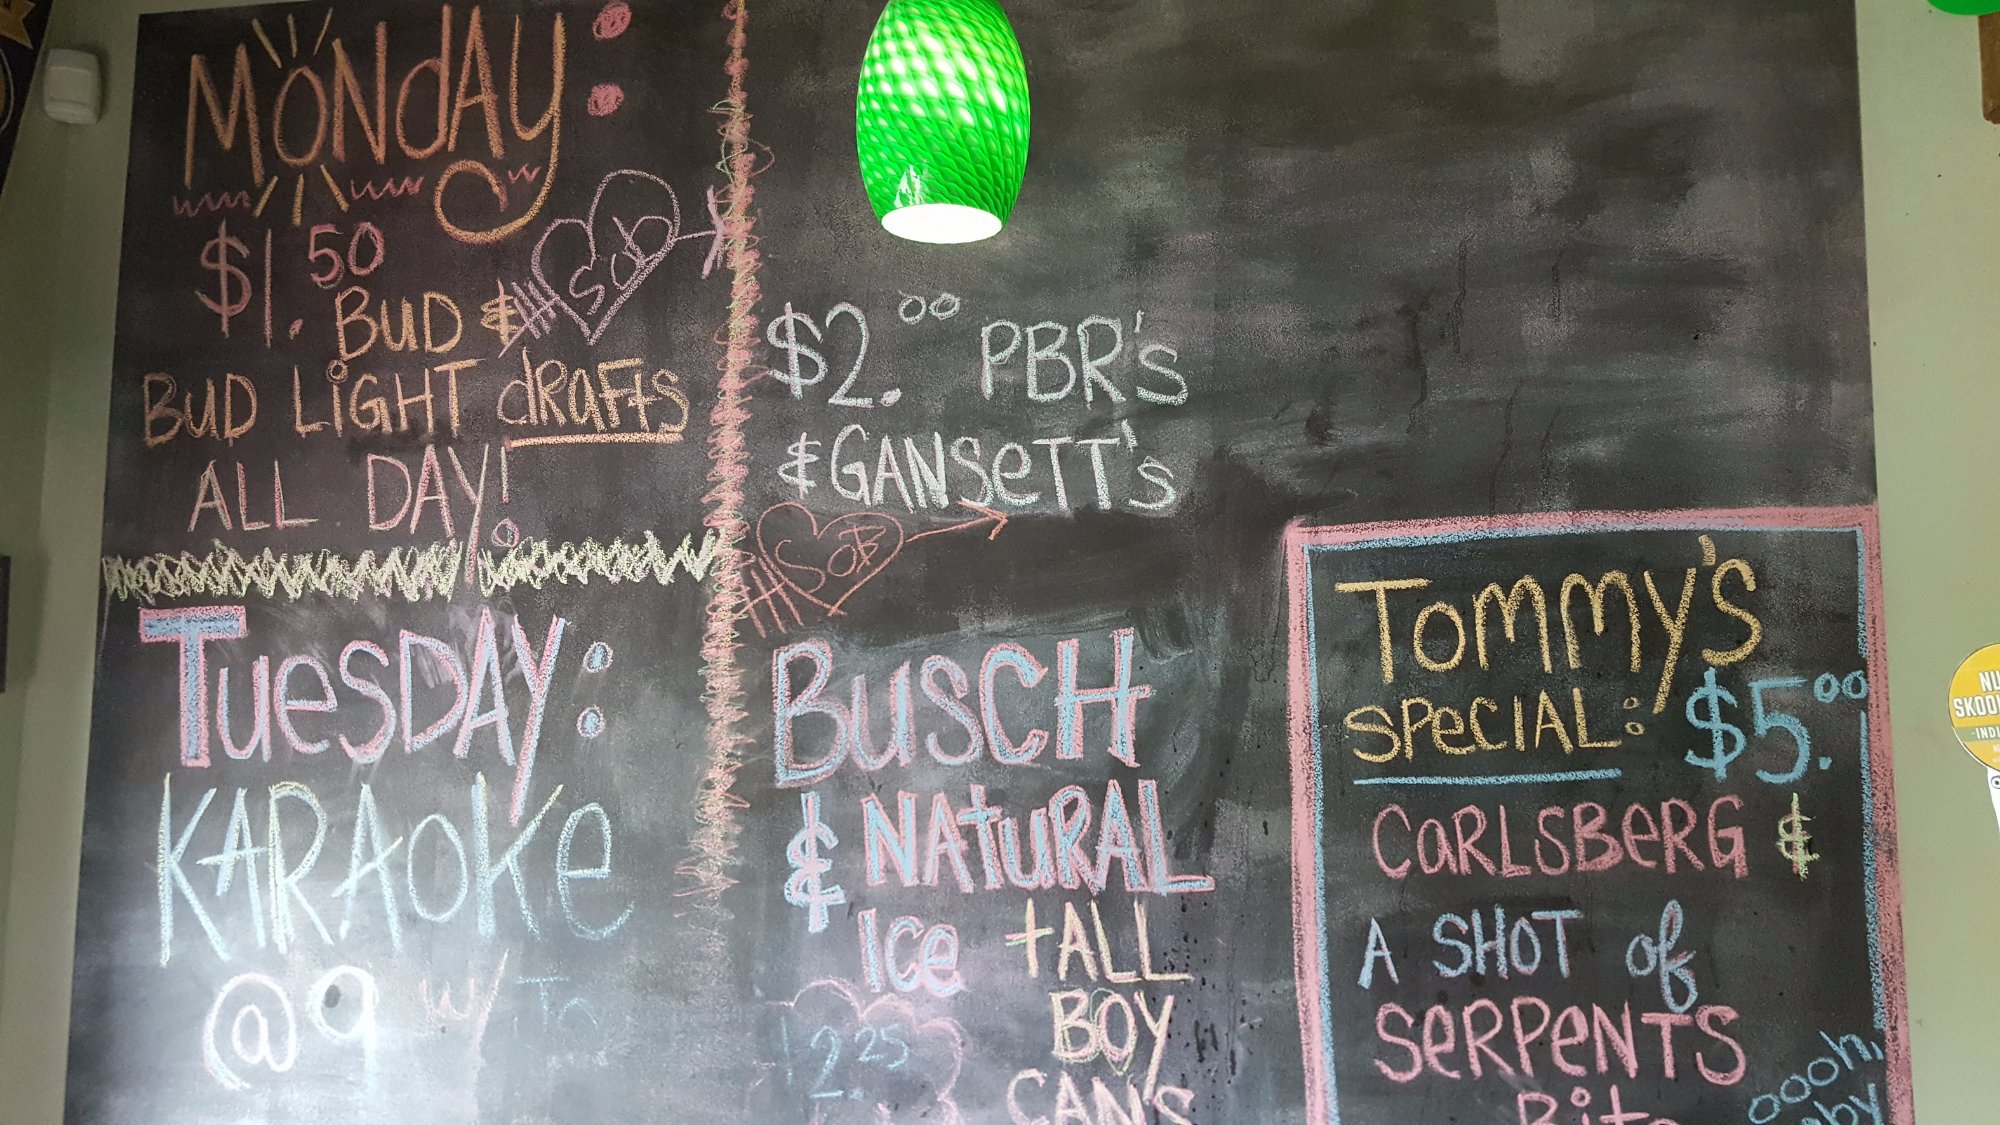 MONdAY:
$1.50
BUD &
SOB
BUD LiGHT dRAFts
ALL DAY!
TuesDAY:
KARAOKe
@ 9 w/ Jo
$2.00 PBR's
& GANSeTT's
SOB
BuSCH
& NAtuRAL
Ice tALL
BOY
2.25
CAN'S
TOMMY'S
SPeCIAL: $5.00
CaRLSBeRG &
A SHOT of
SeRPeNTS
Bite
oooh,
NU
SKOO
-INDI